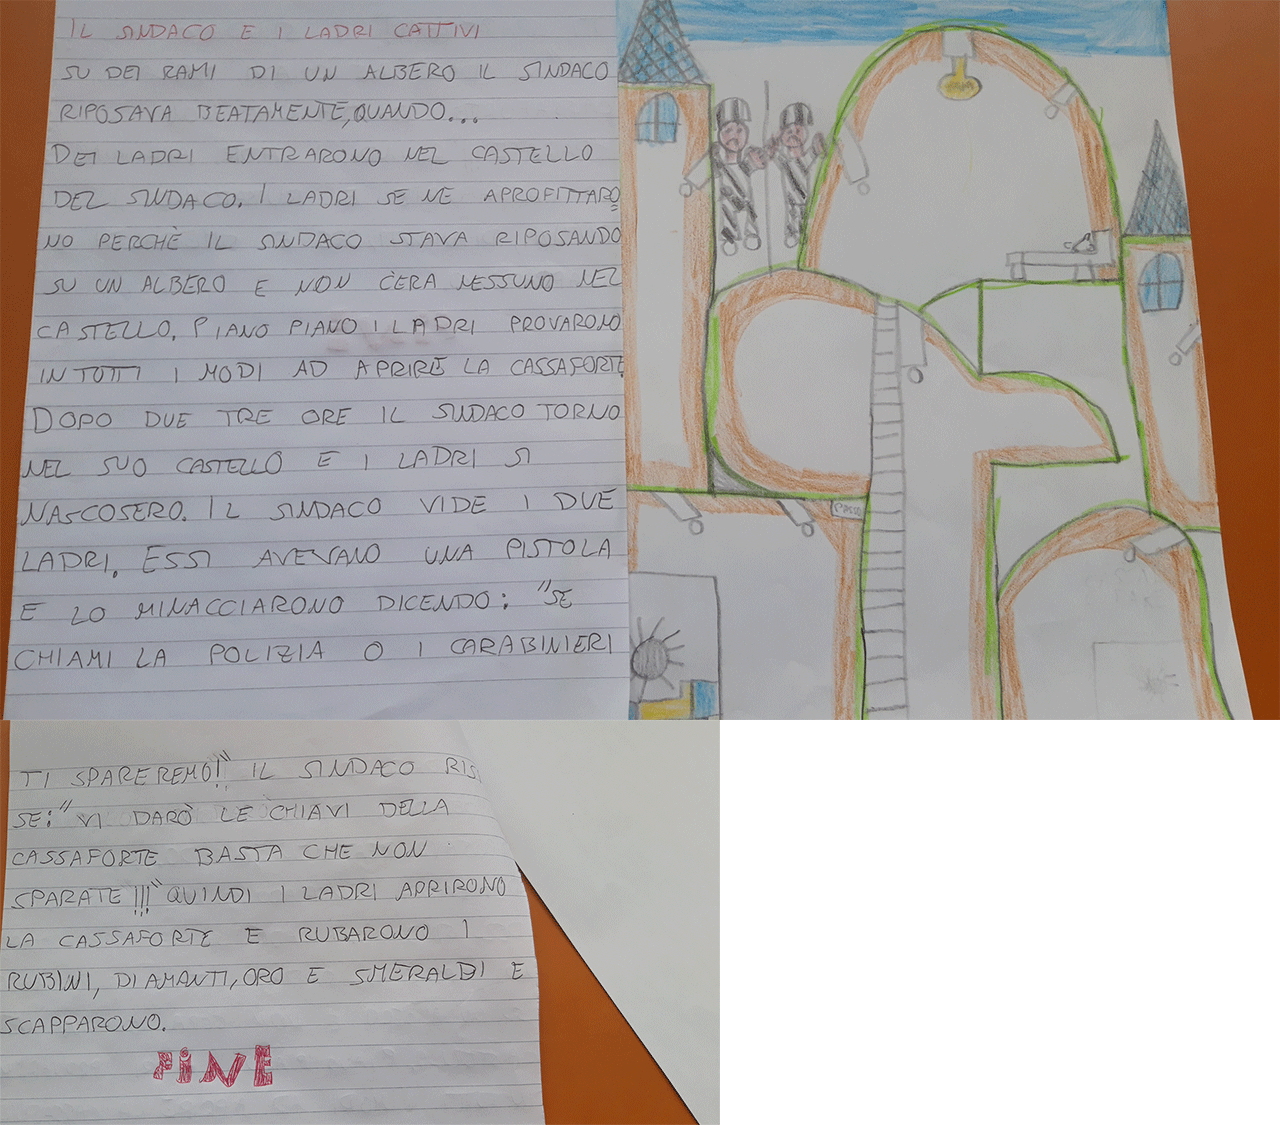 IL SINDACO E I LADRI CATTIVI
SU DEI RAMI DI UN ALBERO IL SINDACO
RIPOSAVA BEATAMENTE, QUANDO...
DEI LADRI ENTRARONO NEL CASTELLO
DEL SINDACO. I LADRI SE NE APROFITTARO
NO PERCHÈ IL SINDACO STAVA RIPOSANDO
SU UN ALBERO E NON C'ERA NESSUNO NEL
CASTELLO. PIANO PIANO I LADRI PROVARONO
IN TUTTI I MODI AD APRIRE LA CASSAFORTE
DOPO DUE TRE ORE IL SINDACO TORNO
NEL SUO CASTELLO E I LADRI SI
NASCOSERO. IL SINDACO VIDE I DUE
LADRI. ESSI AVEVANO UNA PISTOLA
E LO MINACCIARONO DICENDO: "SE
CHIAMI LA POLIZIA O I CARABINIERI
TI SPAREREMO!!" IL SINDACO RIS
SE: "VI DARÒ LE CHIAVI DELLA
CASSAFORTE BASTA CHE NON
SPARATE!!!" QUINDI I LADRI APRIRONO
LA CASSAFORTE E RUBARONO I
RUBINI, DIAMANTI, ORO E SMERALDI E
SCAPPARONO.
FINE